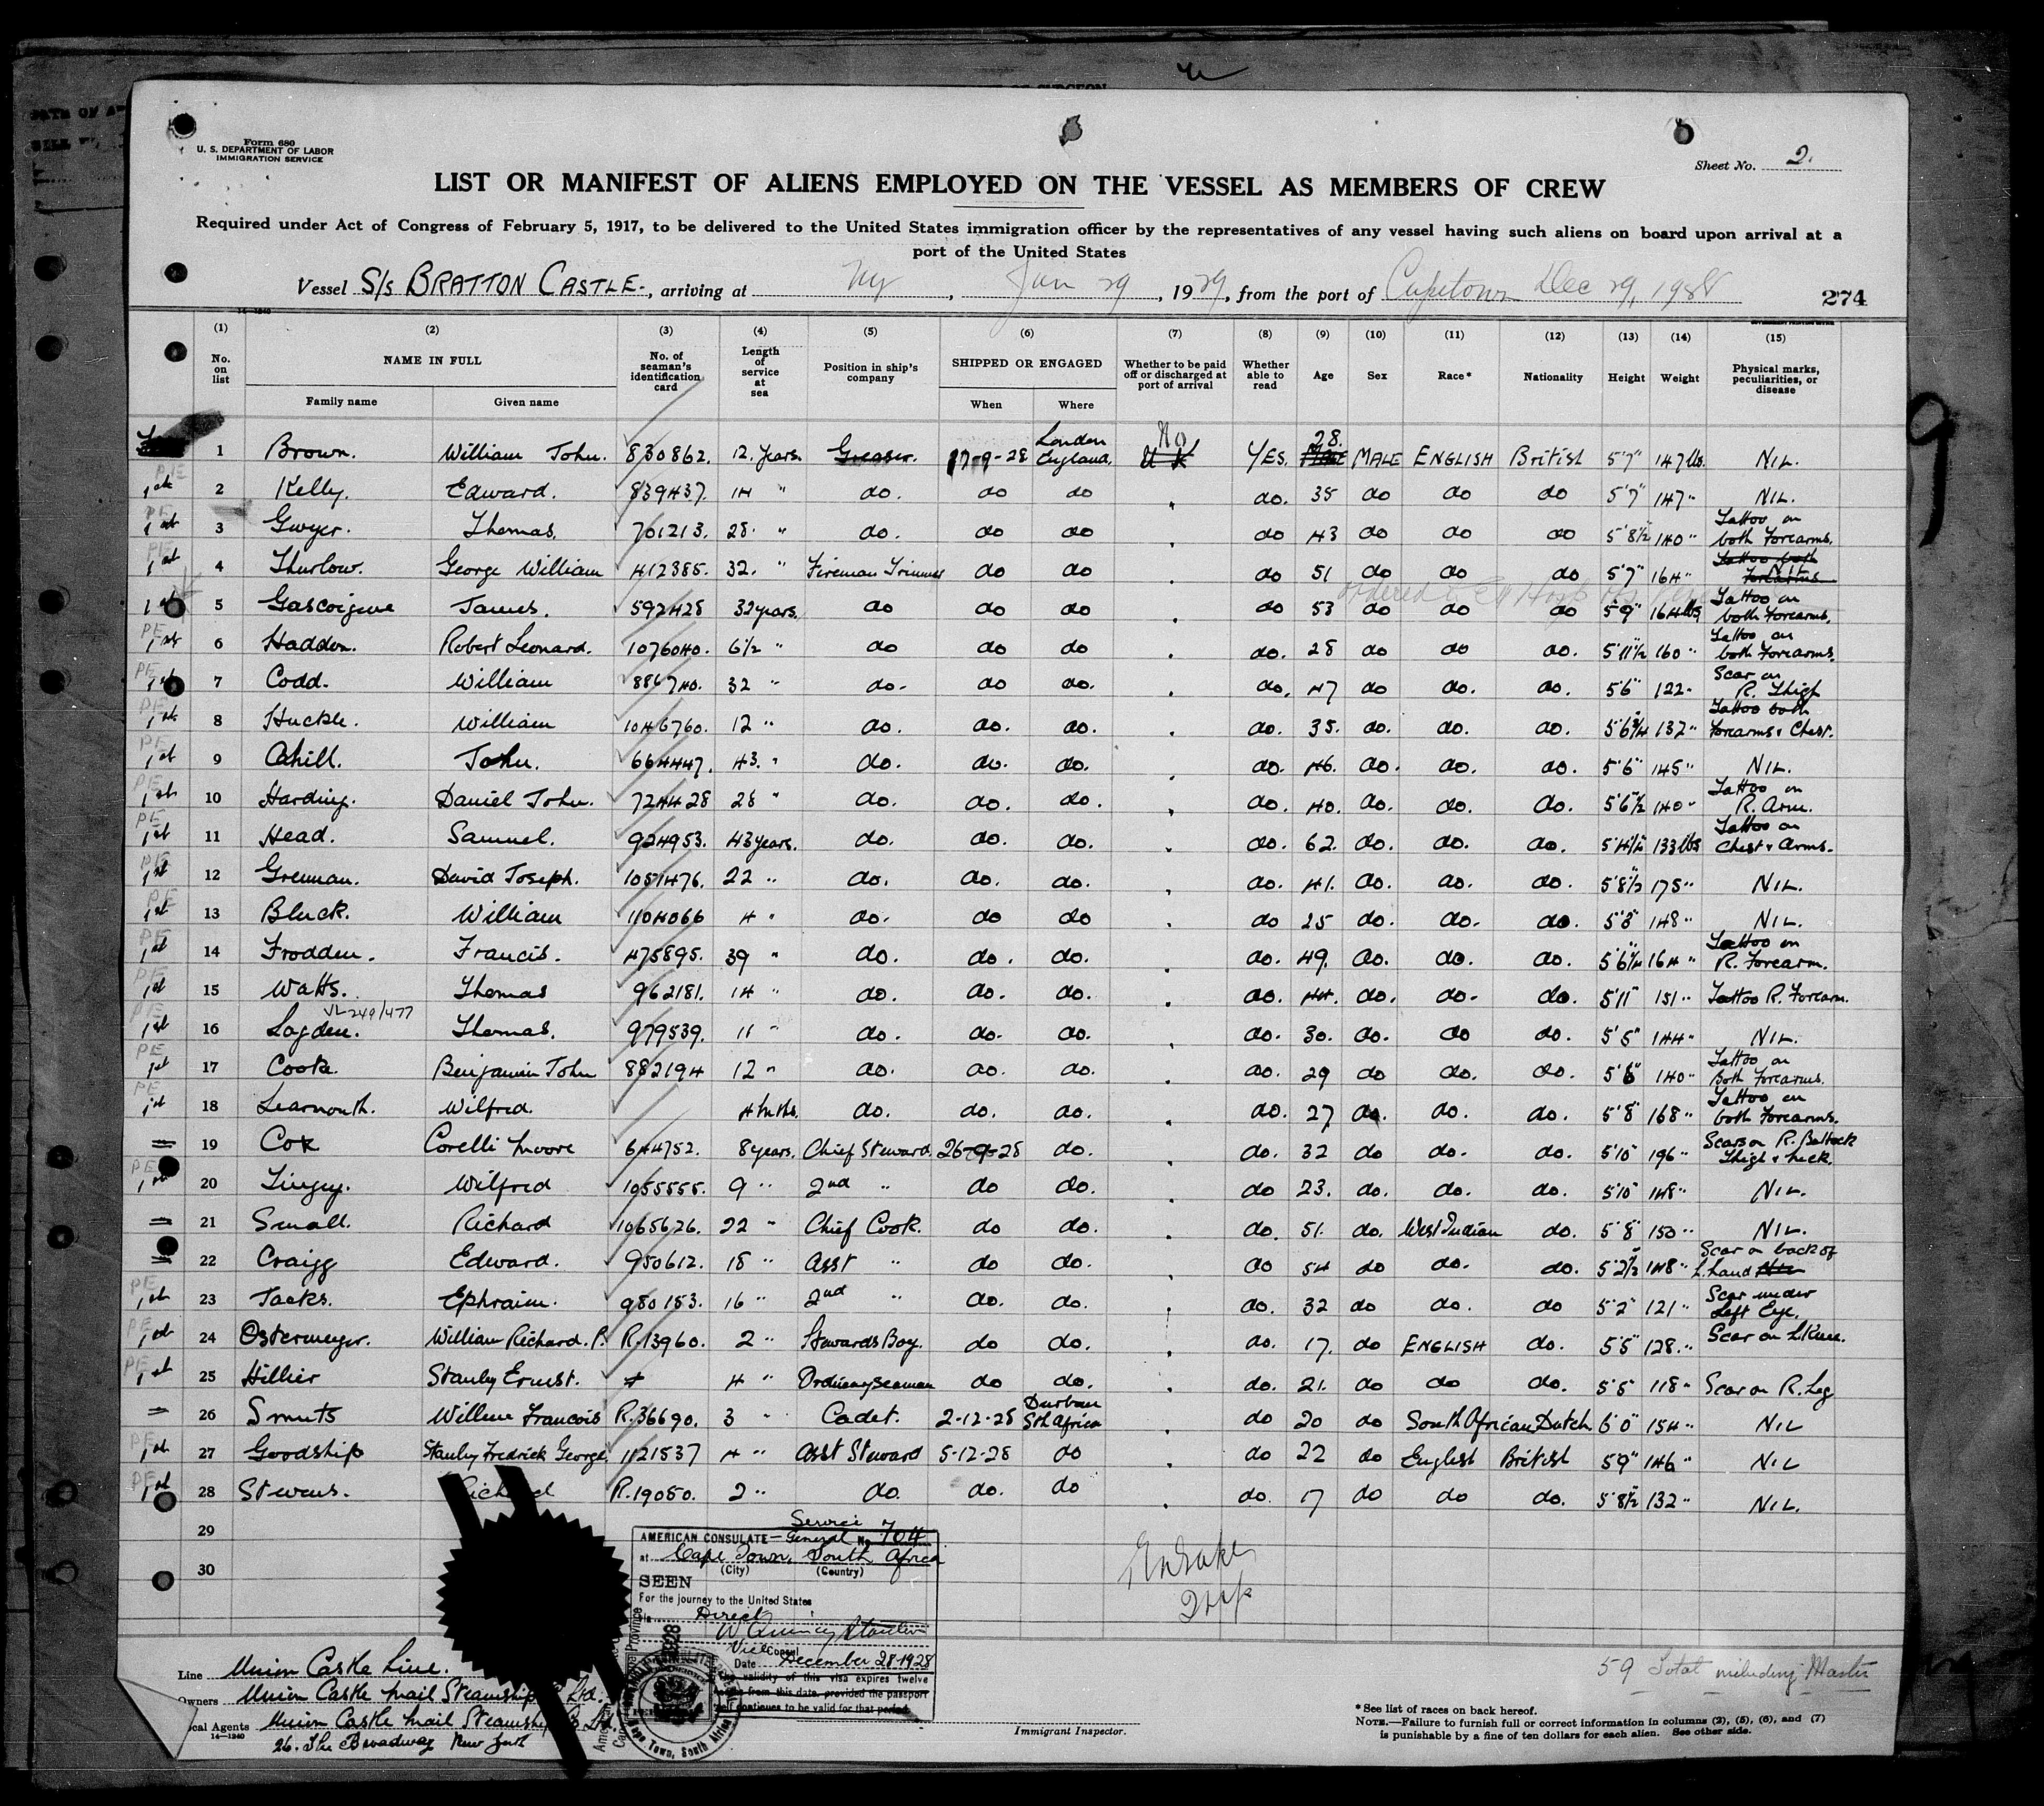 Form 680
U. S. DEPARTMENT OF LABOR
IMMIGRATION SERVICE
Sheet No. 2.
LIST OR MANIFEST OF ALIENS EMPLOYED ON THE VESSEL AS MEMBERS OF CREW
Required under Act of Congress of February 5, 1917, to be delivered to the United States immigration officer by the representatives of any vessel having such aliens on board upon arrival at a
port of the United States
Vessel S/s BRATTON CASTLE, arriving at Ny, Jan 29, 1929, from the port of Capetown Dec 29, 1928
274
(1) (2) (3) (4) (5) (6) (7) (8) (9) (10) (11) (12) (13) (14) (15)
No. on list NAME IN FULL No. of seaman's identification card Length of service at sea Position in ship's company SHIPPED OR ENGAGED Whether to be paid off or discharged at port of arrival Whether able to read Age Sex Race* Nationality Height Weight Physical marks, peculiarities, or disease
Family name Given name When Where
1 Brown. William John. 830862. 12. Years. Greaser. 17-9-28 London England. No U K YES. 28. MALE ENGLISH British 5'7" 147 lbs. NIL.
2 Kelly. Edward. 839437. 14 " do. do do do. 35 do do do 5'7" 147" NIL.
3 Gwyer. Thomas. 701213. 28. " do. do do do 43 do do do 5'8½ 140" Tattoo on both Forearms.
4 Thurlow. George William 412385. 32. " Fireman Trimmer do do do 51 do do do 5'7" 164" Tattoo both Forearms NIL
5 Gascoigne James. 592428 32 years. do do do do 53 do do do 5'9" 164 lbs Tattoo on both Forearms.
6 Hadden. Robert Leonard. 1076040. 6½ " do do do do. 28 do do do. 5'11½ 160" Tattoo on both Forearms.
7 Codd. William 886740. 32 " do. do do. do. 47 do do. do. 5'6" 122" Scar on R. Thigh
8 Huckle. William 1046760. 12 " do. do. do. do. 35. do. do. do. 5'6¾ 132" Tattoo both Forearms & Chest.
9 Cahill. John. 664447. 43. " do. do. do. do. 46. do. do. do. 5'6" 145" NIL.
10 Harding. Daniel John. 724428 28 " do. do. do. do. 40. do. do. do. 5'6½ 140" Tattoo on R. Arm.
11 Head. Samuel. 924953. 43 years. do. do. do. do. 62. do. do. do. 5'4½ 133 lbs Tattoo on Chest & Arms.
12 Grennan. David Joseph. 1051476. 22 " do. do. do. do. 41. do. do. do. 5'8½ 175" NIL.
13 Bluck. William 1104066 4 " do. do do do 25 do. do. do. 5'8" 148" NIL.
14 Frodden. Francis. 475895. 39 " do. do. do. do. 49. do. do. do. 5'6¼ 164" Tattoo on R. Forearm.
15 Watts. Thomas 962181. 14 " do. do. do. do. 44. do. do. do. 5'11" 151" Tattoo R. Forearm.
VL 249/477
16 Logden. Thomas. 979539. 11 " do. do. do. do. 30. do. do do. 5'5" 144" NIL.
17 Cook. Benjamin John 882194 12 " do. do. do. do. 29 do do. do. 5'6" 140" Tattoo on Both Forearms.
18 Learmouth. Wilfred. 4 mths. do. do. do. do. 27 do. do. do. 5'8" 168" Tattoo on both Forearms.
19 Cox Corelli Moore 644752. 8 years. Chief Steward. 26-9-28 do. do. 32 do do. do. 5'10" 196" Scars on R. Buttock Thigh & neck.
20 Tingey. Wilfred 1055555. 9 " 2nd " do do. do 23. do. do. do. 5'10" 148" NIL.
21 Small. Richard 1065626. 22 " Chief Cook. do do. do. 51. do. West Indian do. 5'8" 150" NIL.
22 Craigg Edward. 950612. 18 " Asst " do do. do 54 do do. do. 5'2½ 148" Scar on back of L. hand
23 Jacks. Ephraim. 980153. 16 " 2nd " do. do. do. 32 do do. do 5'2" 121" Scar under Left Eye.
24 Ostermeyer. William Richard. P. R.13960. 2 " Stewards Boy. do do. do. 17. do ENGLISH do. 5'5" 128." Scar on L Knee.
25 Hillier Stanley Ernest. 4 " Ordinary Seaman do do. do. 21. do do do. 5'5" 118" Scar on R. Leg
26 Smuts Willem Francois R.36690. 3 " Cadet. 2-12-28 Durban Sth Africa do 20 do South African Dutch 6'0" 154" NIL
27 Goodship Stanley Fredrick George. 1121537 4 " Asst Steward 5-12-28 do do 22 do English British 5'9" 146" NIL
28 Stevens. Richard R.19050. 2 " do. do. do do. 17 do do do. 5'8½ 132" NIL.
29
30
AMERICAN CONSULATE-General Service No 704
at Cape Town, South Africa
(City) (Country)
SEEN
For the journey to the United States
via Direct
Vice Consul
Date December 28-1928
The validity of this visa expires twelve
months from this date, provided the passport
continues to be valid for that period.
59 Total including Master
Line Union Castle Line.
Owners Union Castle Mail Steamship Co Ltd.
Local Agents Union Castle Mail Steamship Co Ltd.
14-1240
26. The Broadway New York
Immigrant Inspector.
* See list of races on back hereof.
NOTE.—Failure to furnish full or correct information in columns (2), (5), (6), and (7)
is punishable by a fine of ten dollars for each alien. See other side.